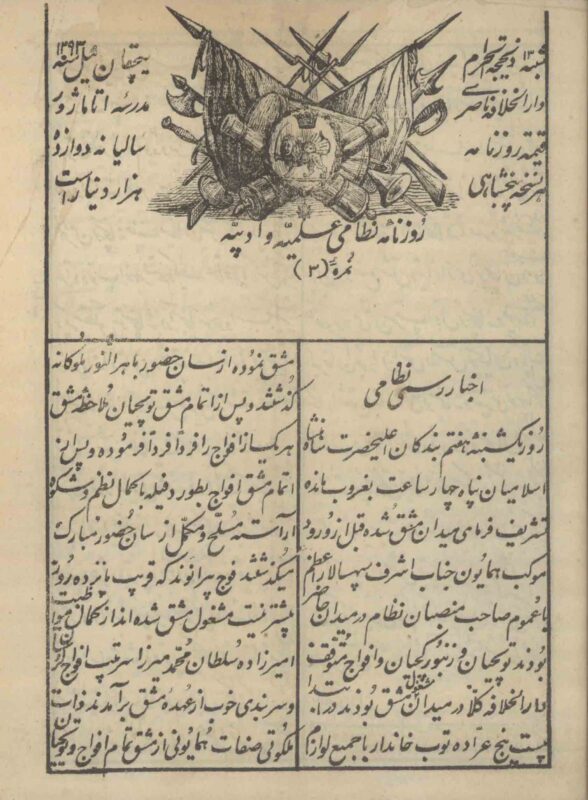 شنبه ۱۳ ذیحجه الحرام
دارالخلافه ناصری
قیمة روزنامه
هر نسخه پنجشاهی
ئیل سنه ۱۲۹۳
مدرسه
سالیانه دوازده
هزار دینار است
روزنامه نظامی علمیه و ادبیه
نمره (۳)
اخبار رسمی نظامی
روز یکشنبه هفتم بندکان اعلیحضرت شاهنشاه
اسلامیان پناه چهار ساعت بغروب مانده
تشریف فرمای میدان مشق شده قبل از ورود
موکب همایون جناب اشرف سپهسالار اعظم
با عموم صاحب منصبان نظام در میدان حاضر
بودند توپچیان و زنبورکچیان و افواج متوقف
دارالخلافه کلاً در میدان مشق مشغول بودند در ابتدا
بیست پنج عراده توپ خاندار با جمیع لوازم
مشق نموده از سان حضور باهرالنور ملوکانه
کذشتند و پس از اتمام مشق توپچیان ملاحظه مشق
هر یک از افواج را فرداً فرد فرموده و پس از
اتمام مشق افواج بطور دفیله با کمال نظم و شکوه
آراسته مسلح و مکمل از سان حضور مبارک
میکذشتند فوج که قریب پانزده روز
بیشتر نیست مشغول مشق شده اند از کمال مواظبت
امیرزاده سلطان محمد میرزا سرتیپ افواج
و سربندی خوب از عهده مشق برآمدند ذات
ملکوتی صفات همایونی از مشق تمام افواج و توپچیان